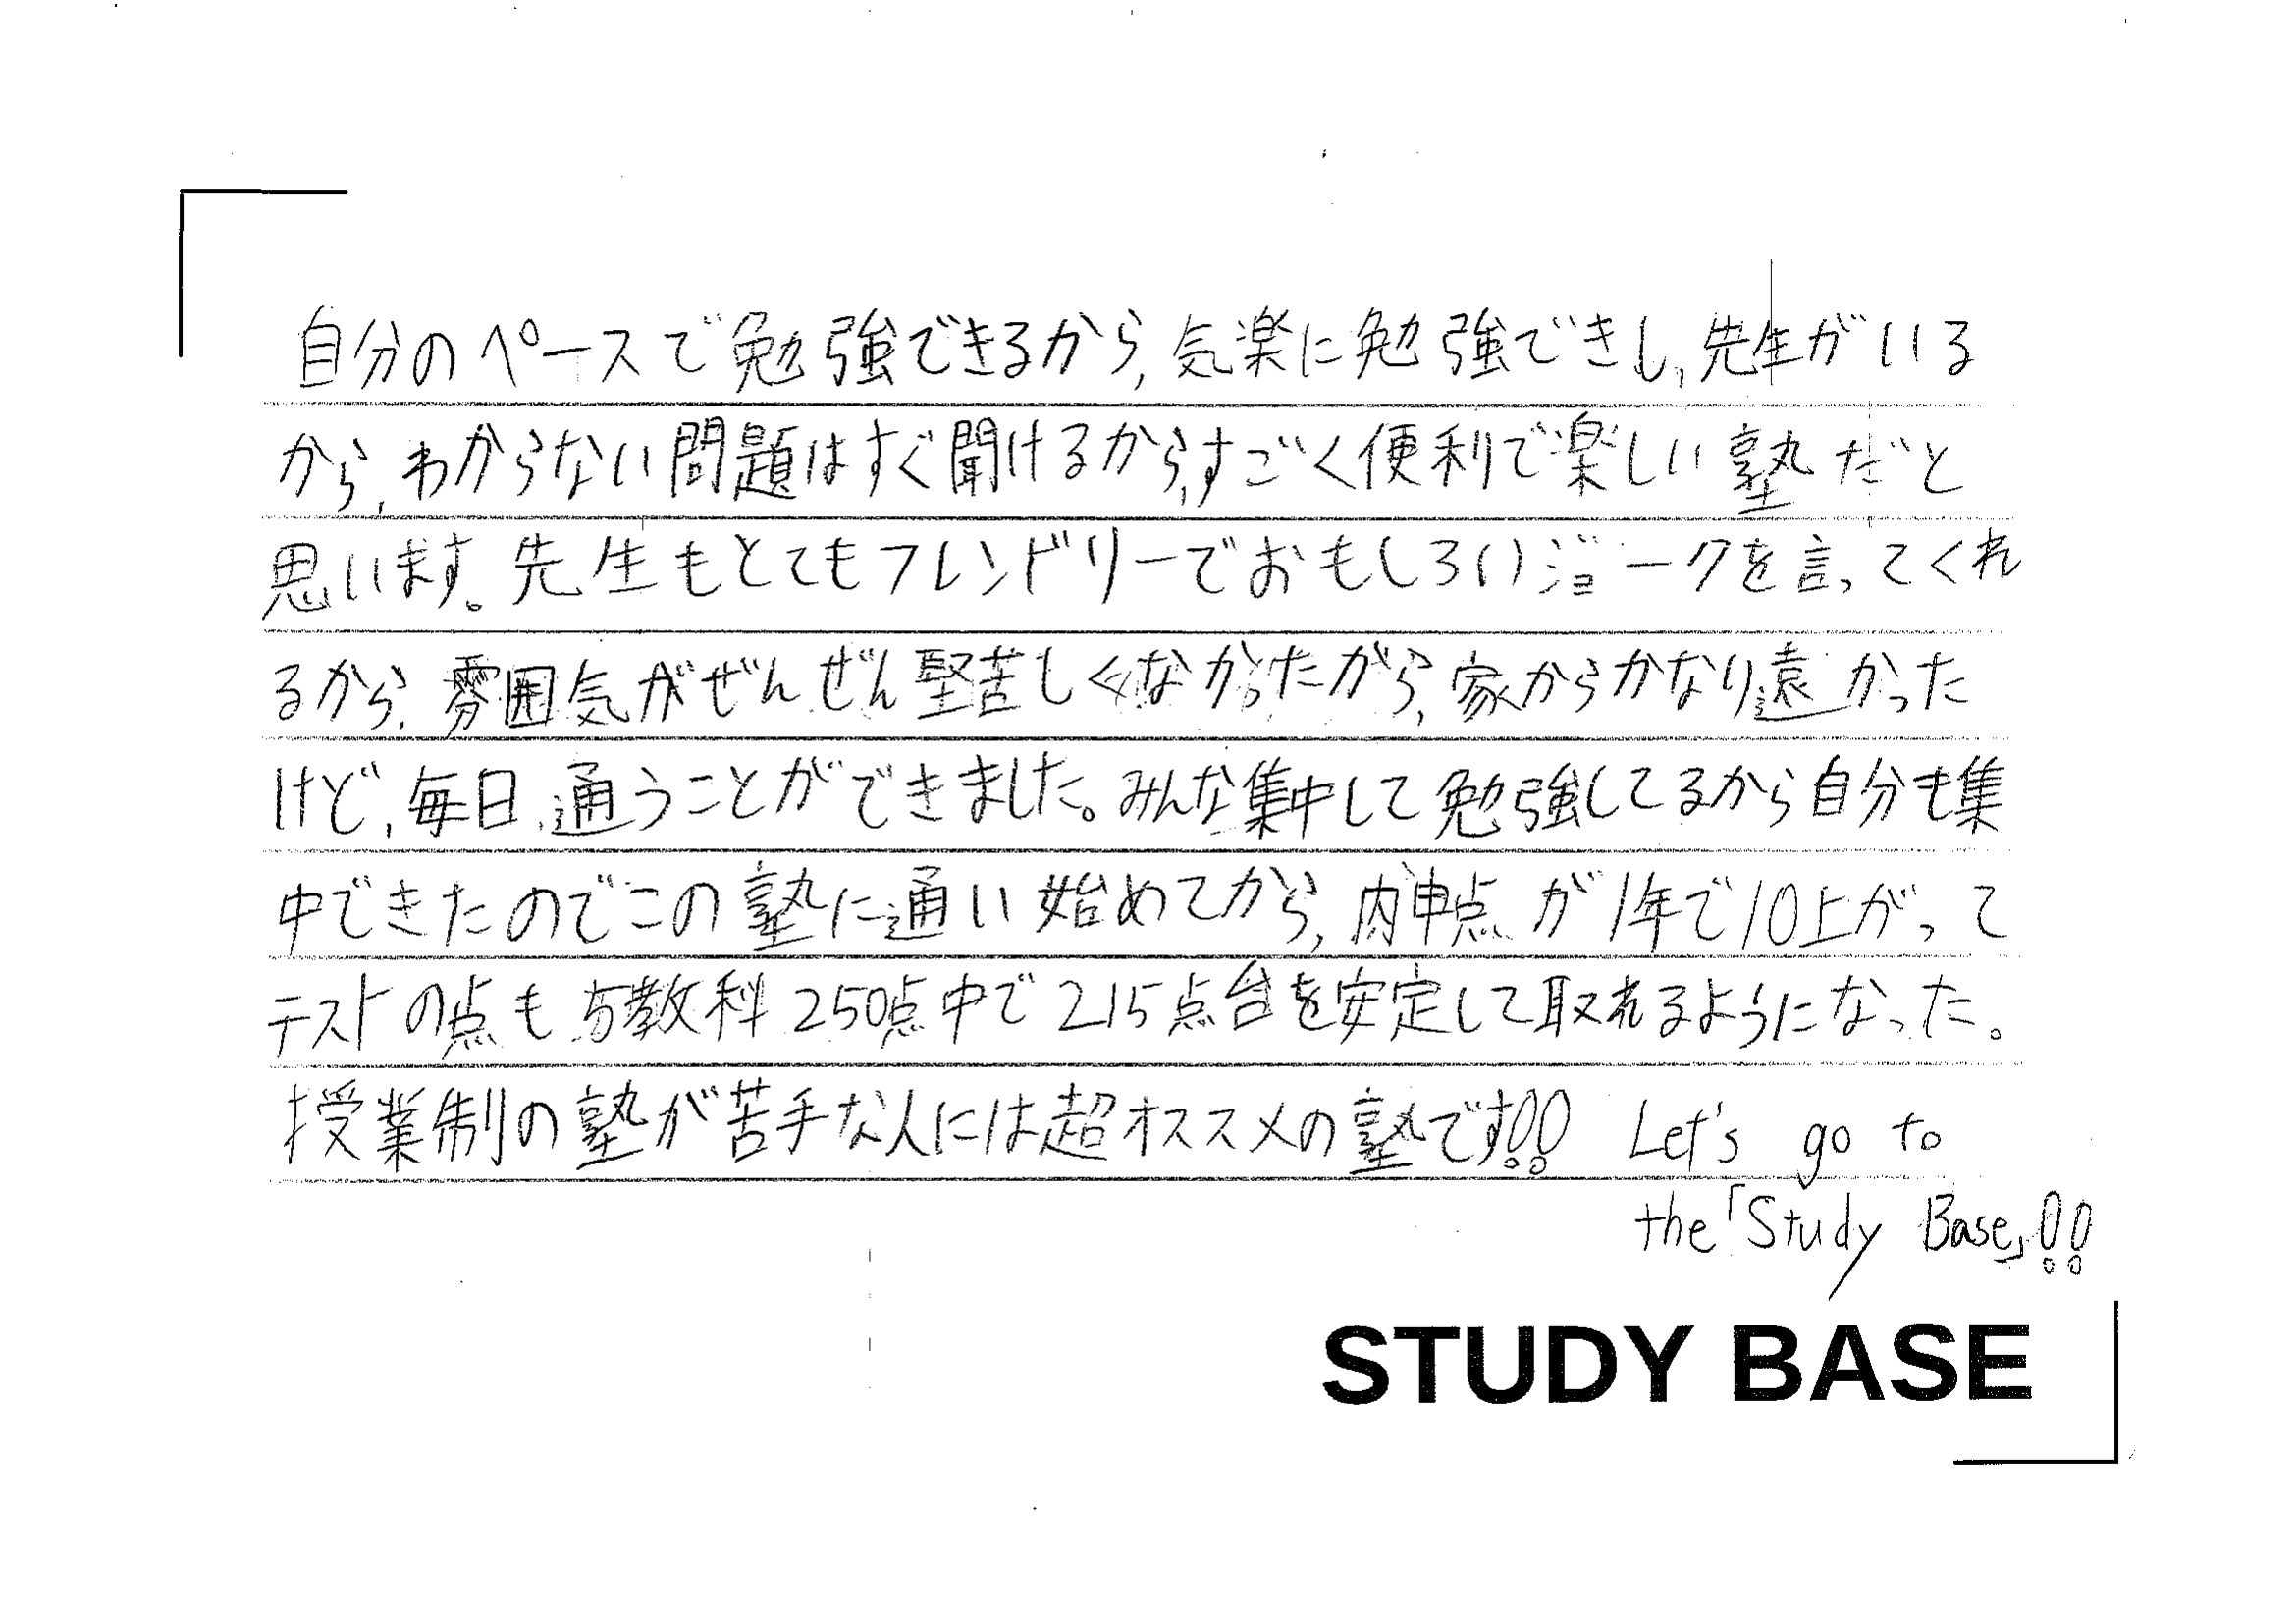 自分のペースで勉強できるから,気楽に勉強できし,先生がいる
から,わからない問題はすぐ聞けるから,すごく便利で楽しい塾だと
思います。先生もとてもフレンドリーでおもしろいジョークを言ってくれ
るから,雰囲気がぜんぜん堅苦しくなかったがら,家からかなり遠かった
けど,毎日,通うことができました。みんな集中して勉強してるから自分も集
中できたのでこの塾に通い始めてから,内申点が1年で10上がって
テストの点も5教科250点中で215点台を安定して取れるようになった。
授業制の塾が苦手な人には超オススメの塾です!! Let's go to
the「Study Base」!!
STUDY BASE